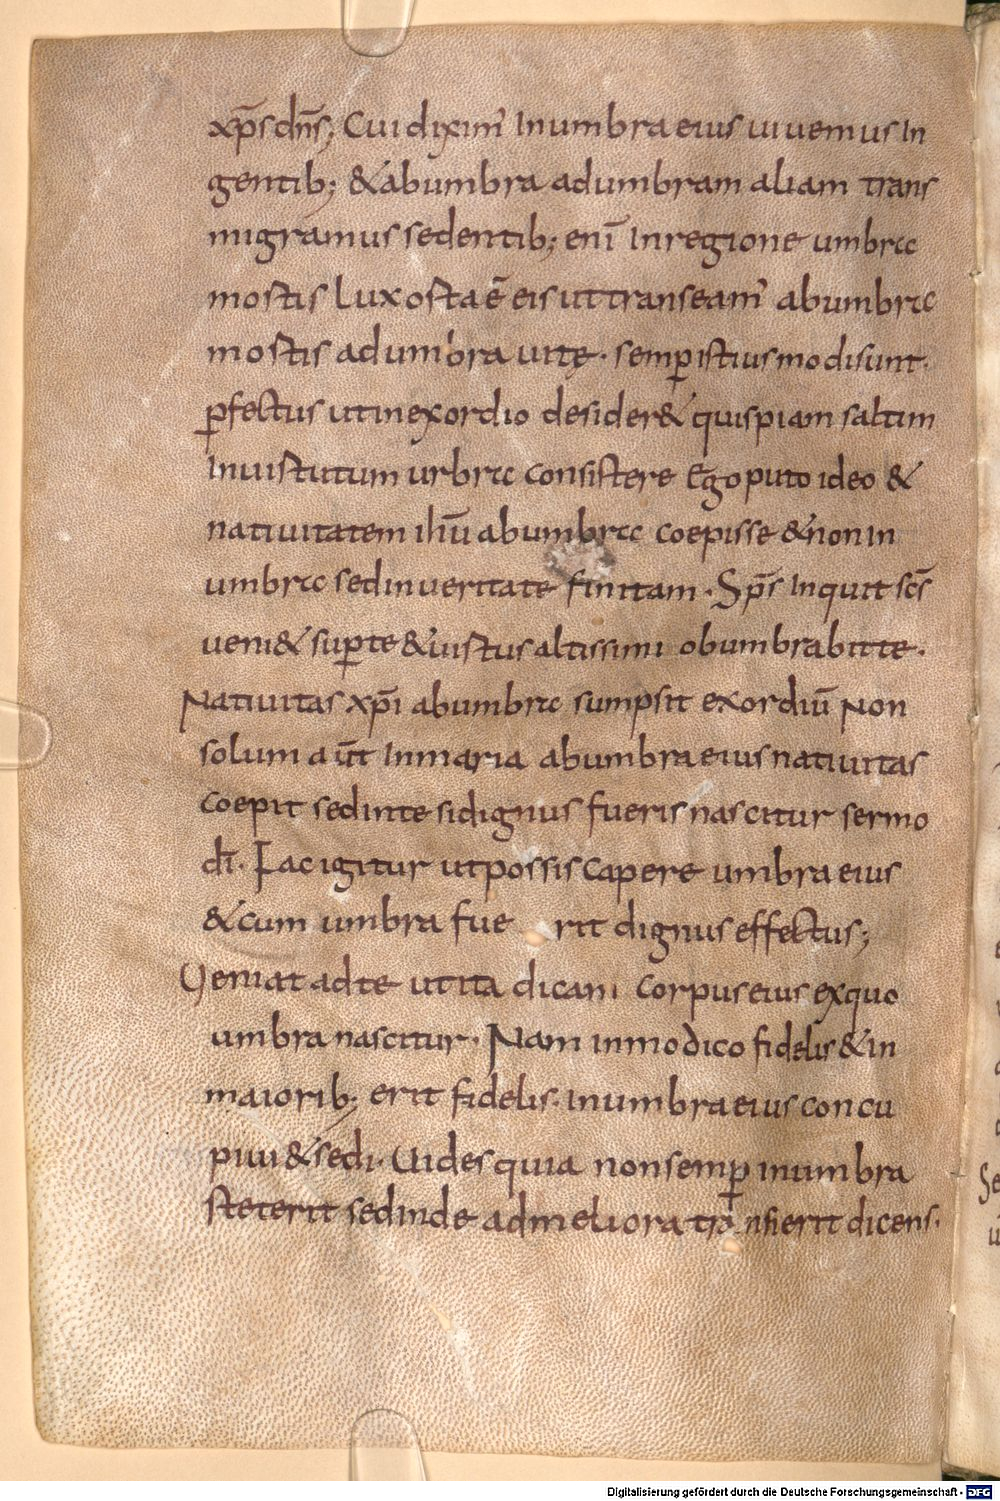 xp̄s dn̄s; Cui dixim' In umbra eius uiuemus In
gentib; & ab umbra ad umbram aliam trans
migramus sedentib; enī In regione umbrae
mortis lux orta ē eis ut transeam' ab umbrae
mortis ad umbra uitę. semp̱ istius modi sunt.
p̱fectus ut in exordio desider& quispiam saltim
In uirtutum urbrae consistere Ego puto ideo &
natiuitatem ihū ab umbrae coepisse & non In
umbrae sed in ueritate finitam. Sp̄s Inquit sc̄s
ueni& sup̱ te & uirtus altissimi obumbrabit te.
Natiuitas xp̄i ab umbrae sumpsit exordiū Non
solum aūt In maria ab umbra eius natiuitas
coepit sed in te si dignus fueris nascitur sermo
dī. Fac igitur ut possis capere umbra eius
& cum umbra fue rit dignus effectus;
Ueniat ad te ut ita dicam corpus eius ex quo
umbra nascitur. Nam in modico fidelis & in
maiorib; erit fidelis. In umbra eius concu
piui & sedi. Uides quia non semp̱ in umbra
steterit sed inde ad meliora tra nsierit dicens.
Digitalisierung gefördert durch die Deutsche Forschungsgemeinschaft - DFG